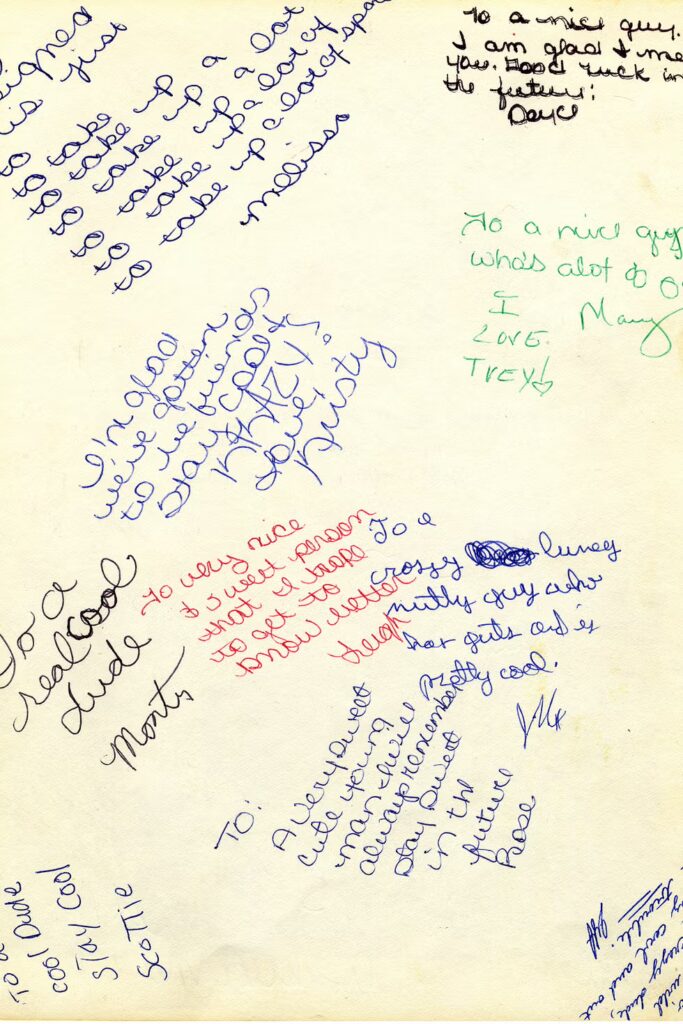 signed
is just
to take up a lot
to take up a lot
to take up a lot
to take up a lot of
to take up a lot of space
Melissa
To a nice guy.
I am glad I me
you. Good luck in
the future!
To a nice guy
who's alot of
I
LOVE
TREY!
Mary
I'm glad
we've gotten
to be friends
Stay cool &
KRAZY!
Love,
Dusty
To very nice
& sweet person
that I hope
to get to
know better
Leigh
To a
crazy luney
nutty guy who
has guts and is
pretty cool.
To a
real cool
dude
Monty
TO:
A very sweet
cute young
man that I will
always remember
Stay sweet
in the
future
Rose
To a
cool Dude
Stay Cool
Scottie
wild
crazy dude,
cool and out
trouble.
Jeff